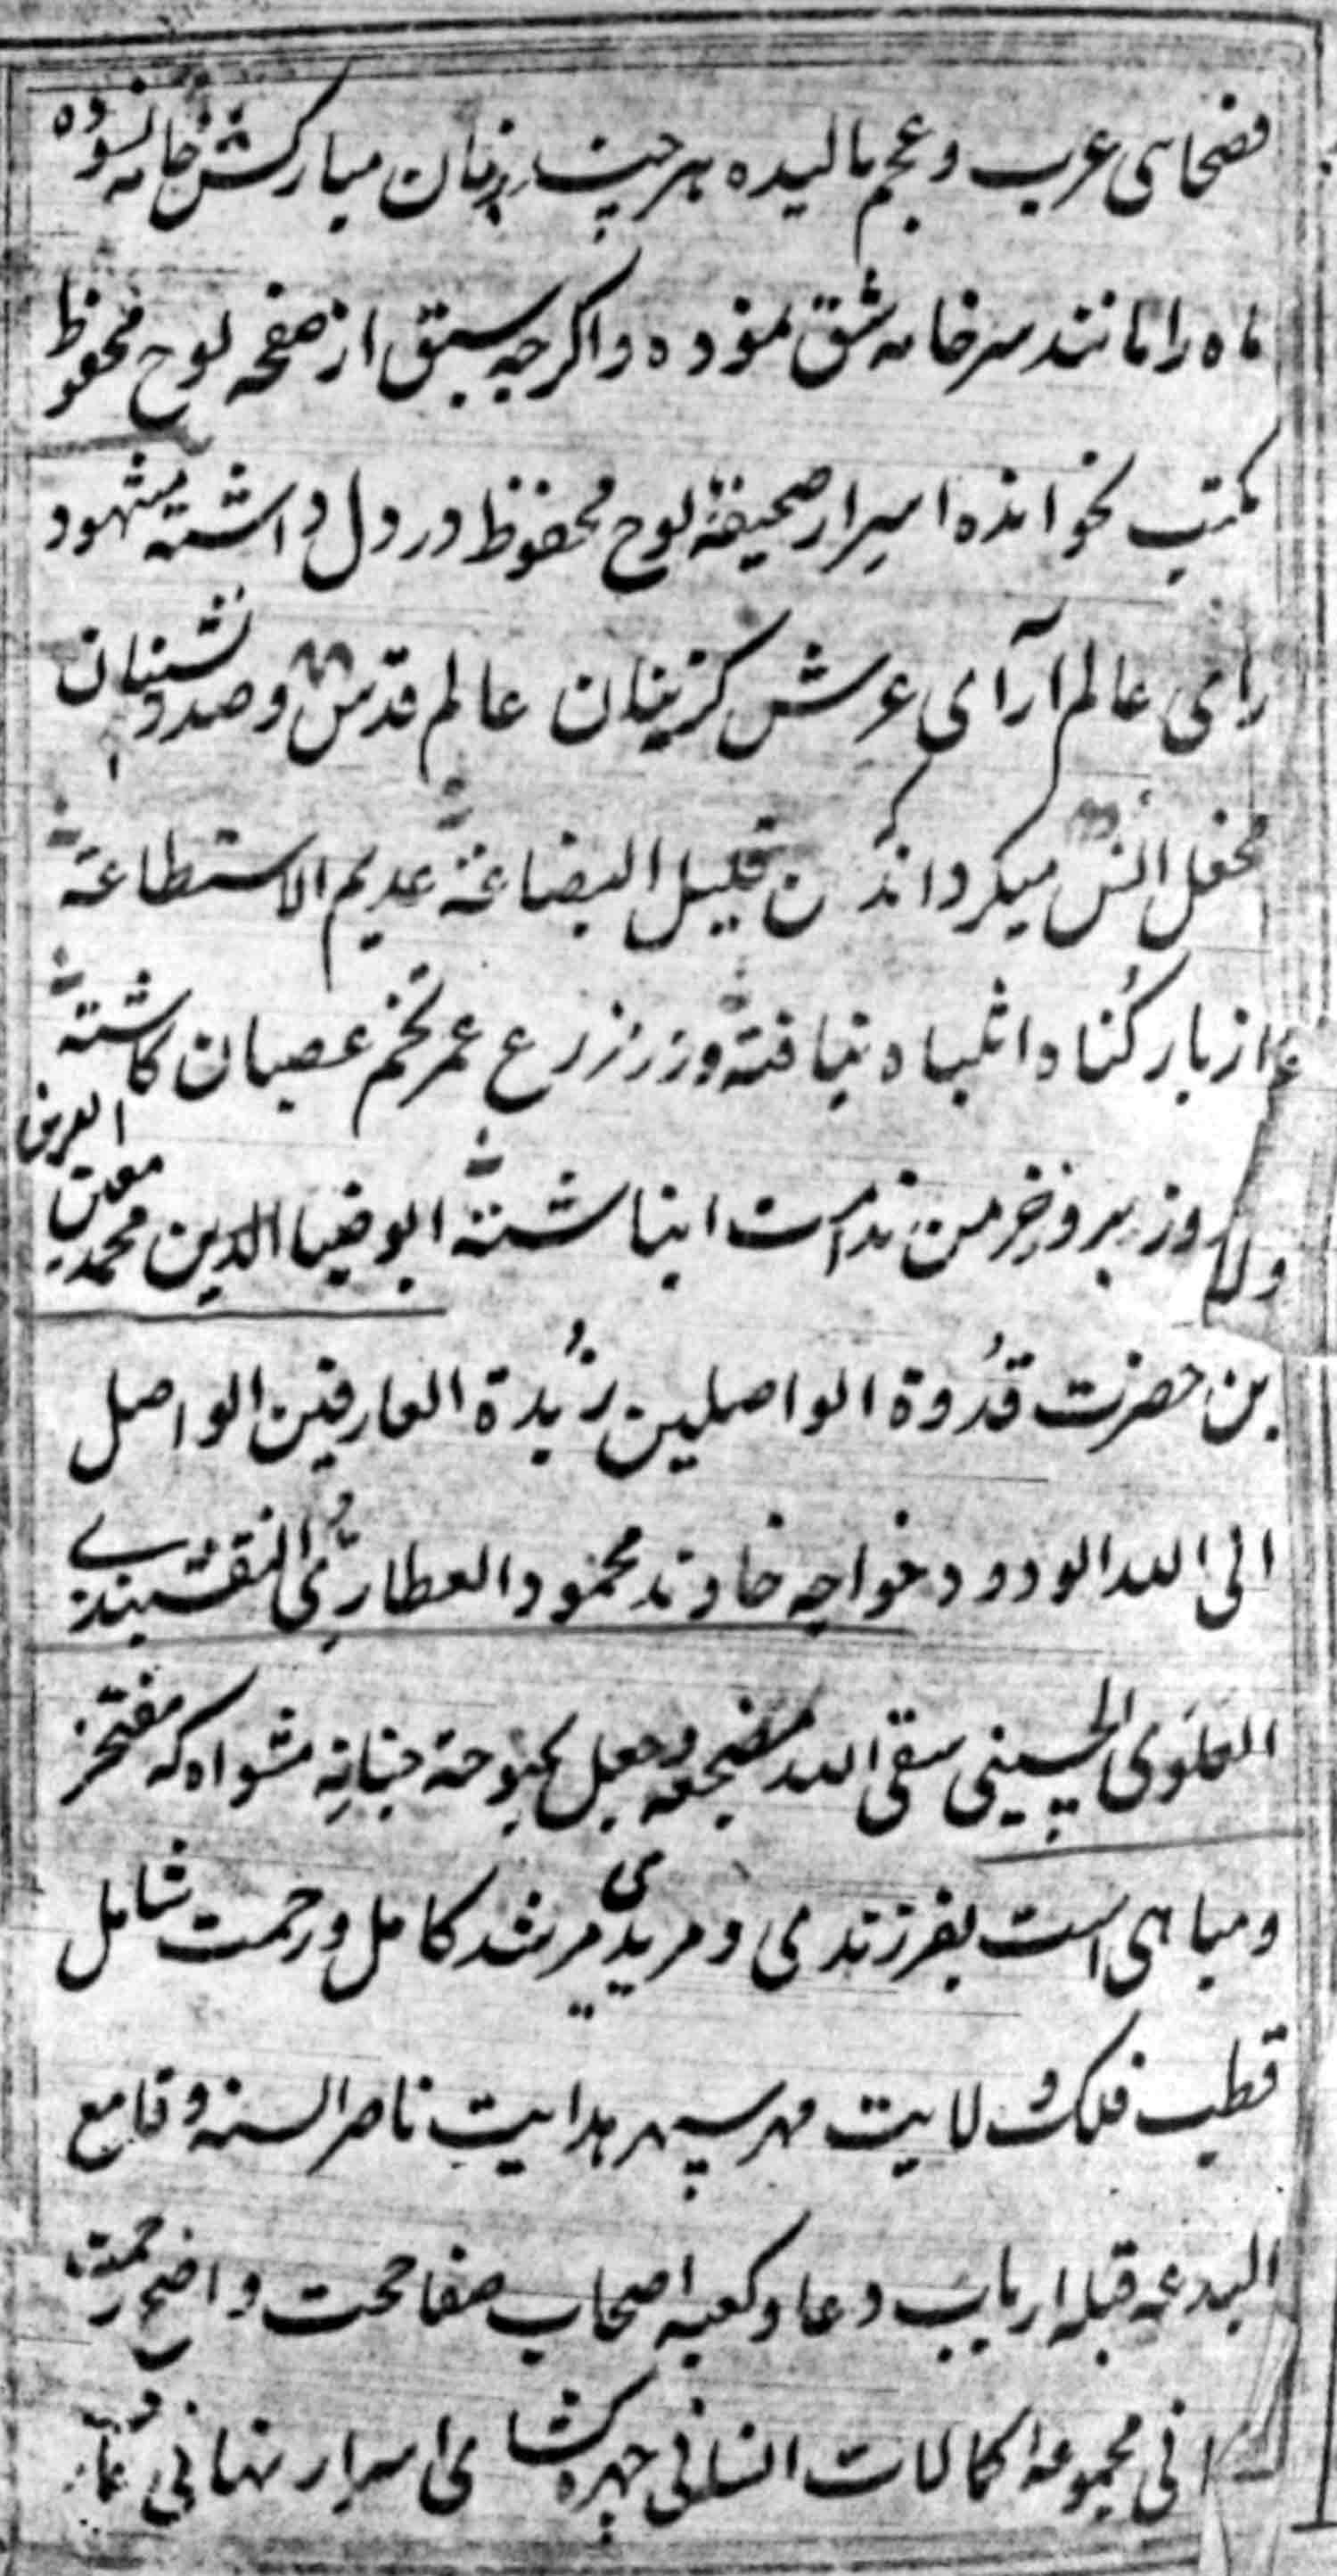 فصحای عرب و عجم مالیده هر چند بنان مبارکش خامه نسوده
ماه را مانند سر خامه شق نموده و اکرچه سبق از صفحه لوح محفوظ
مکتب نخوانده اسرار صحیفهٔ لوح محفوظ در دل داشته مشهود
رای عالم آرای عرش کزینان عالم قدس و صدر نشینان
محفل انس میکرداند که قلیل البضاعة عدیم الاستطاعة
از بار کناه انتباه نیافته و در مزرع عمر تخم عصیان کاشته
روز بروز خرمن ندامت انباشته ابو ضیا الدین محمد معین
بن حضرت قُدوة الواصلین زُبدة العارفین الواصل
الی الله الودود خواجه خاوند محمود العطاری النقشبندی
العلوی الحسینی سقی الله مضجعه و جعل بحبوحة جنانه مثواه که مفتخر
و مباهی است بفرزندی و مریدی مرشد کامل و رحمت شامل
قطب فلک ولایت مهر سپهر هدایت ناصر السنه و قامع
البدعه قبله ارباب دعا و کعبه اصحاب صفا حجت واضح رحمت
مجموعه کمالات انسانی چهره کشای اسرار نهانی